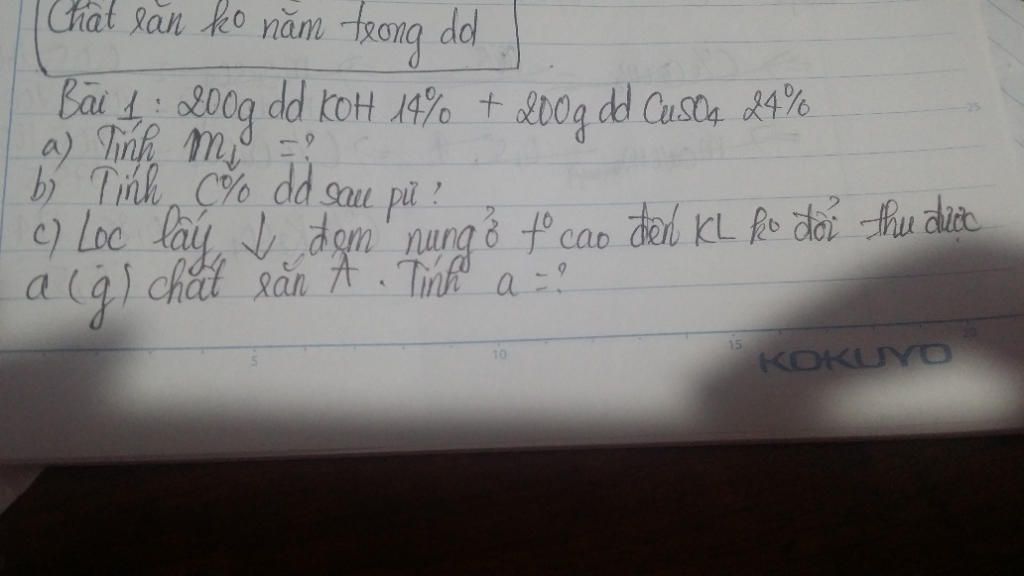 Chất rắn ko nằm trong dd
Bài 1 : 200g dd KOH 14% + 200g dd CuSO4 24%
a) Tính m↓ = ?
b) Tính C% dd sau pứ ?
c) Lọc lấy ↓ đem nung ở t° cao đến KL ko đổi thu được
a (g) chất rắn A . Tính a = ?
5 10 15 20
KOKUYO